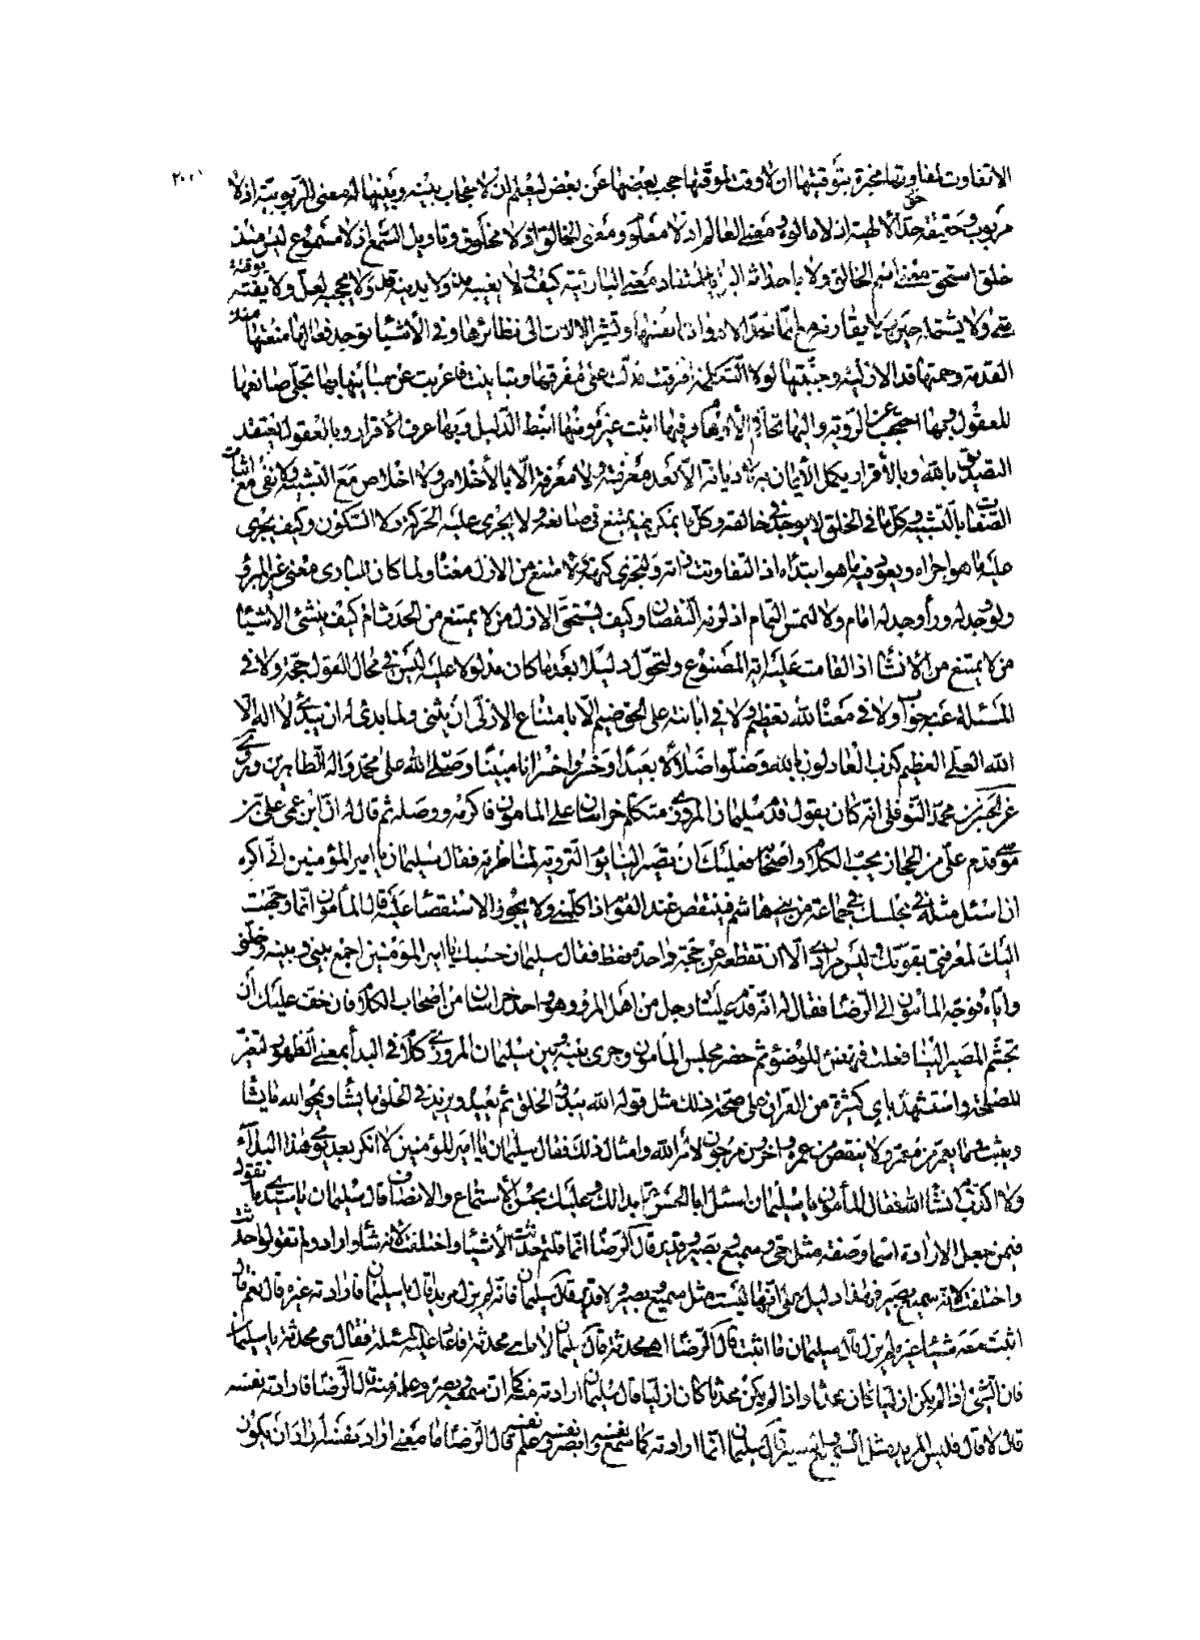 الا تفاوت لمفاوتها مخبرة بتوقيتها ان لا وقت لموقتها حجب بعضها عن بعض ليعلم ان لا حجاب بينه وبينها له معنى الربوبية اذ لا
مربوب وحقيقة الالهية اذ لا مالوه ومعنى العالم اذ لا معلوم ومعنى الخالق اذ لا مخلوق وتاويل السمع اذ لا مسموع ليس منذ
خلق استحق معنى اسم الخالق ولا باحداثه البرايا استفاد معنى البارئية كيف ولا يغيبه مذ ولا يدنيه قد ولا يحجبه لعل ولا يوقته
متى ولا يشتمله حين ولا يقارنه مع انما تحد الادوات انفسها وتشير الالات الى نظائرها وفي الاشياء يوجد فعالها منعتها منذ
القدمة وحمتها قد الازلية وجنبتها لولا التكملة افترقت فدلت على مفرقها وتباينت فاعربت عن مباينها بها تجلى صانعها
للعقول وبها احتجب عن الرؤية واليها تحاكم الاوهام وفيها اثبت غيره ومنها انبط الدليل وبها عرف الاقرار وبالعقول يعتقد
التصديق بالله وبالاقرار يكمل الايمان به لا ديانة الا بعد معرفة ولا معرفة الا بالاخلاص ولا اخلاص مع التشبيه ولا نفي مع اثبات
الصفات بالتشبيه وكل ما في الخلق لا يوجد في خالقه وكل ما يمكن فيه يمتنع في صانعه ولا يجرى عليه الحركة ولا السكون وكيف يجرى
عليه ما هو اجراه ويعود فيه ما هو ابتداه اذا لتفاوتت ذاته ولتجزى كنهه ولامتنع من الازل معناه ولما كان للبارى معنى غير المبرو
ولو وجد له وراء وجد له امام ولا لتمس التمام اذ لزمه النقصان وكيف يستحق الازل من لا يمتنع من الحدث ام كيف ينشئ الاشياء
من لا يمتنع من الانشاء اذا لقامت عليه اية المصنوع ولتحول دليلا بعد ما كان مدلولا عليه ليس في محال القول حجة ولا في
المسئلة عنه جواب ولا في معناه لله تعظيم ولا في ابانته على الحق ضيم الا بامتناع الازلى ان يثنى ولما بدئ له ان يبدأ لا اله الا
الله العلي العظيم كذب العادلون بالله وضلوا ضلالا بعيدا وخسروا خسرانا مبينا وصلى الله على محمد واله الطاهرين وروى
عن الحسن بن محمد النوفلى انه كان يقول قدم سليمان المروزى متكلم خراسان على المامون فاكرمه ووصله ثم قال له ان ابن عمى على بن
موسى قدم على من الحجاز يحب الكلام واصحابه فعليك ان تصير الينا يوم التروية لمناظرته فقال سليمان يا امير المؤمنين انى اكره
ان اسئل مثله في مجلسك في جماعة من بنى هاشم فينتقص عند القوم اذا كلمنى ولا يجوز الاستقصاء عليه قال المأمون انما وجهت
اليك لمعرفتى بقوتك وليس مرادى الا ان تقطعه عن حجة واحدة فقط فقال سليمان حسبك يا امير المؤمنين اجمع بينى وبينه وخلنى
واياه فوجه المامون الى الرضا فقال له انه قدم علينا رجل من اهل المرو وهو واحد خراسان من اصحاب الكلام فان خف عليك ان
تتجشم المصير الينا فعلت فنهض للوضوء ثم حضر مجلس المامون وجرى بينه وبين سليمان المروزى كلام في البدأ بمعنى الظهور لتغير
المصلحة واستشهد باى كثيرة من القران على صحة ذلك مثل قوله الله يبدؤ الخلق ثم يعيده ويزيد في الخلق ما يشاء ويمحو الله ما يشاء
ويثبت وما يعمر من معمر ولا ينقص من عمره واخرون مرجون لامر الله وامثال ذلك فقال سليمان يا امير المؤمنين لا انكر بعد يومى هذا البداء
ولا اكذب به انشاء الله فقال المأمون يا سليمان اسئل ابا الحسن عما بدا لك وعليك بحسن الاستماع والانصاف قال سليمان يا سيدى ما تقول
فيمن جعل الارادة اسما وصفة مثل حى وسميع بصير وقدير قال الرضا انما قلتم حدثت الاشياء واختلفت لانه شاء واراد ولم تقولوا حدثت
واختلفت لانه سميع بصير فهذا دليل على انها ليست مثل سميع بصير ولا قدير قال سليمان فانه لم يزل مريدا قال يا سليمان فارادته غيره قال نعم قال
اثبت معه شيئا غيره لم يزل قال سليمان ما اثبت قال الرضا اهى محدثة قال سليمان لا ما هى محدثة فاعاد عليه المسئلة فقال هى محدثة يا سليمان
فان الشئ اذا لم يكن ازليا كان محدثا واذا لم يكن محدثا كان ازليا قال سليمان ارادته منه كما ان سمعه وبصره وعلمه منه قال الرضا فارادته نفسه
قال لا قال فليس المريد مثل السميع البصير قال سليمان انما اراد نفسه كما سمع نفسه وابصر نفسه وعلم نفسه قال الرضا ما معنى اراد نفسه اراد ان يكون